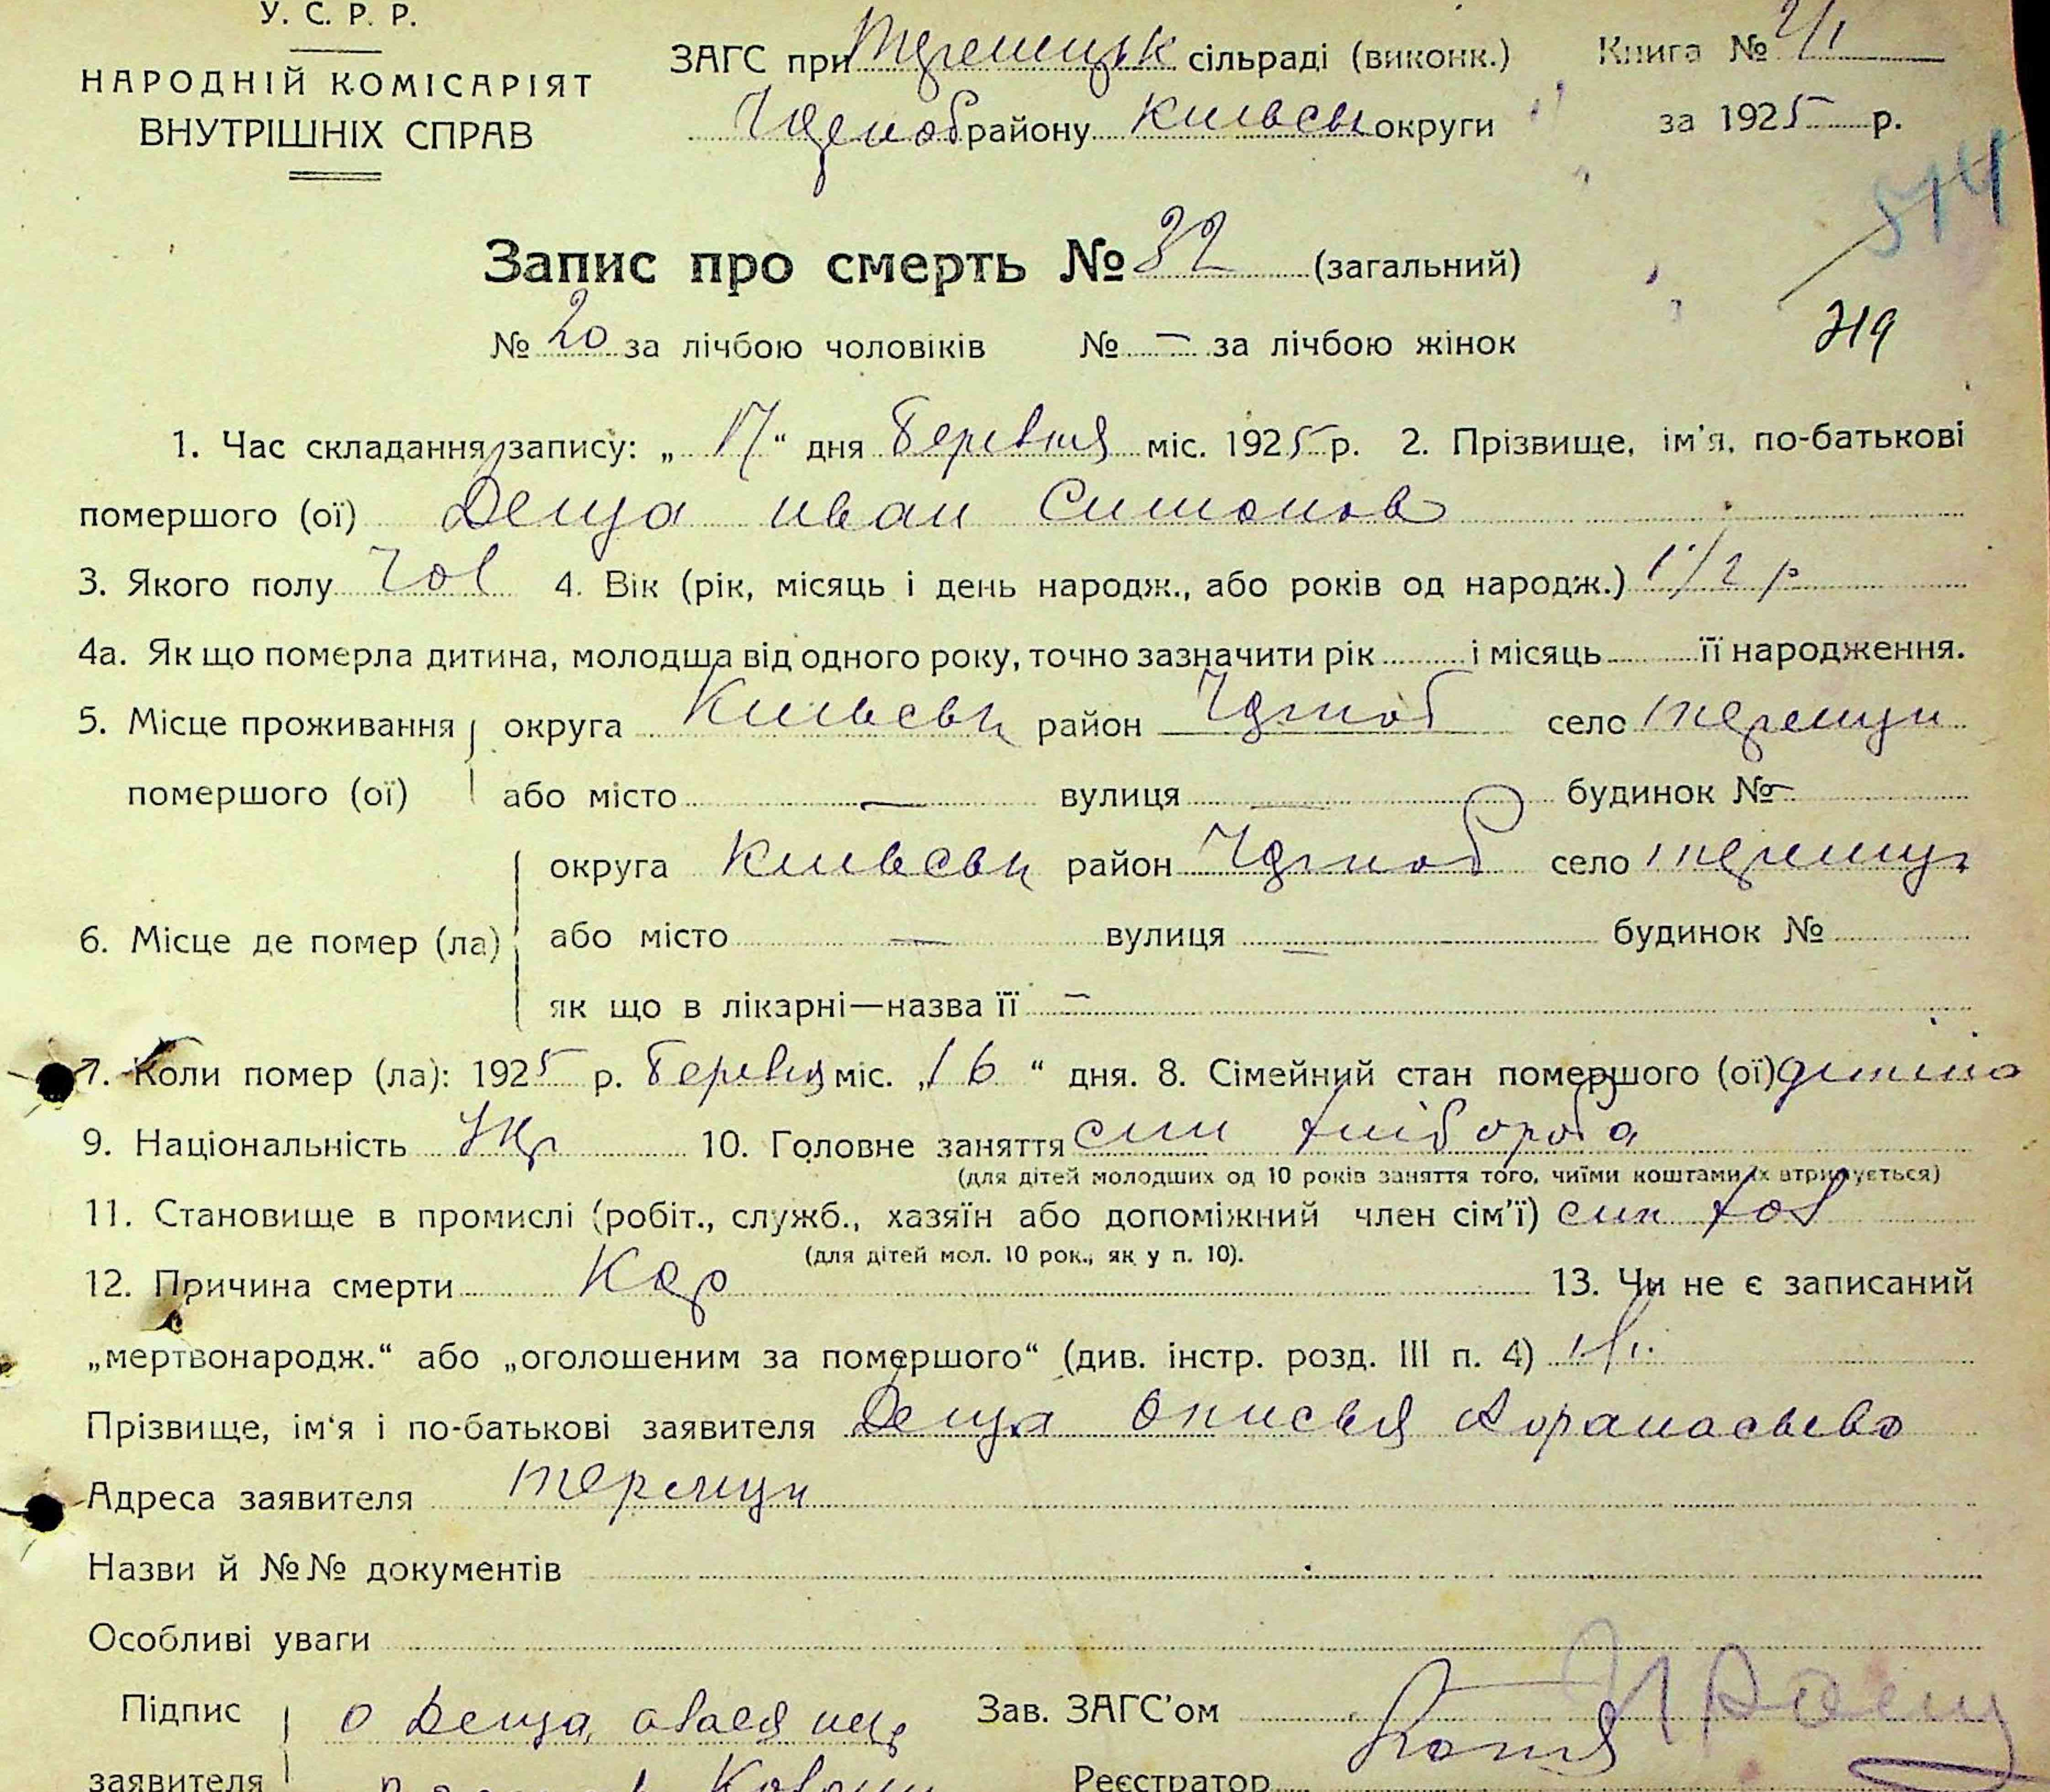 У. С. Р. Р.
НАРОДНІЙ КОМІСАРІЯТ
ВНУТРІШНІХ СПРАВ
ЗАГС при Теремецьк сільраді (виконк.)
Чорноб району Київськ округи
Книга №
за 1925 р.
514
Запис про смерть № 32 (загальний)
219
№ 20 за лічбою чоловіків № — за лічбою жінок
1. Час складання запису: „17“ дня Березня міс. 1925 р. 2. Прізвище, ім'я, по-батькові
помершого (ої) Деща иван Симонов
3. Якого полу Чол 4. Вік (рік, місяць і день народж., або років од народж.) 1/2 р
4а. Як що померла дитина, молодша від одного року, точно зазначити рік і місяць її народження.
5. Місце проживання округа Київськ район Чорноб село теремци
помершого (ої) або місто — вулиця — будинок № —
округа Київськ район Чорноб село теремци
6. Місце де помер (ла) або місто — вулиця — будинок №
як що в лікарні—назва її —
7. Коли помер (ла): 1925 р. Березня міс. „16“ дня. 8. Сімейний стан помершого (ої) дитина
9. Національність Укр 10. Головне заняття син хлібороба
(для дітей молодших од 10 років заняття того, чиїми коштами їх втримується)
11. Становище в промислі (робіт., служб., хазяїн або допоміжний член сім'ї) син хоз
(для дітей мол. 10 рок., як у п. 10).
12. Причина смерти Кор 13. Чи не є записаний
„мертвонародж.“ або „оголошеним за помершого“ (див. інстр. розд. III п. 4) ні
Прізвище, ім'я і по-батькові заявителя Деща Онисья Афанасьевa
Адреса заявителя теремци
Назви й №№ документів
Особливі уваги
Підпис О Деща, а за ея нег Зав. ЗАГС'ом
заявителя Реєстратор